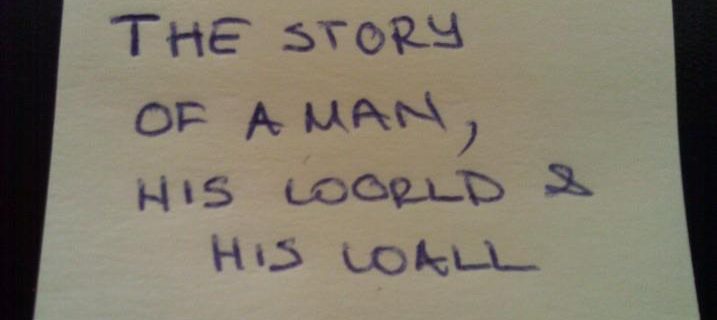 THE STORY
OF A MAN,
HIS WORLD &
HIS WALL